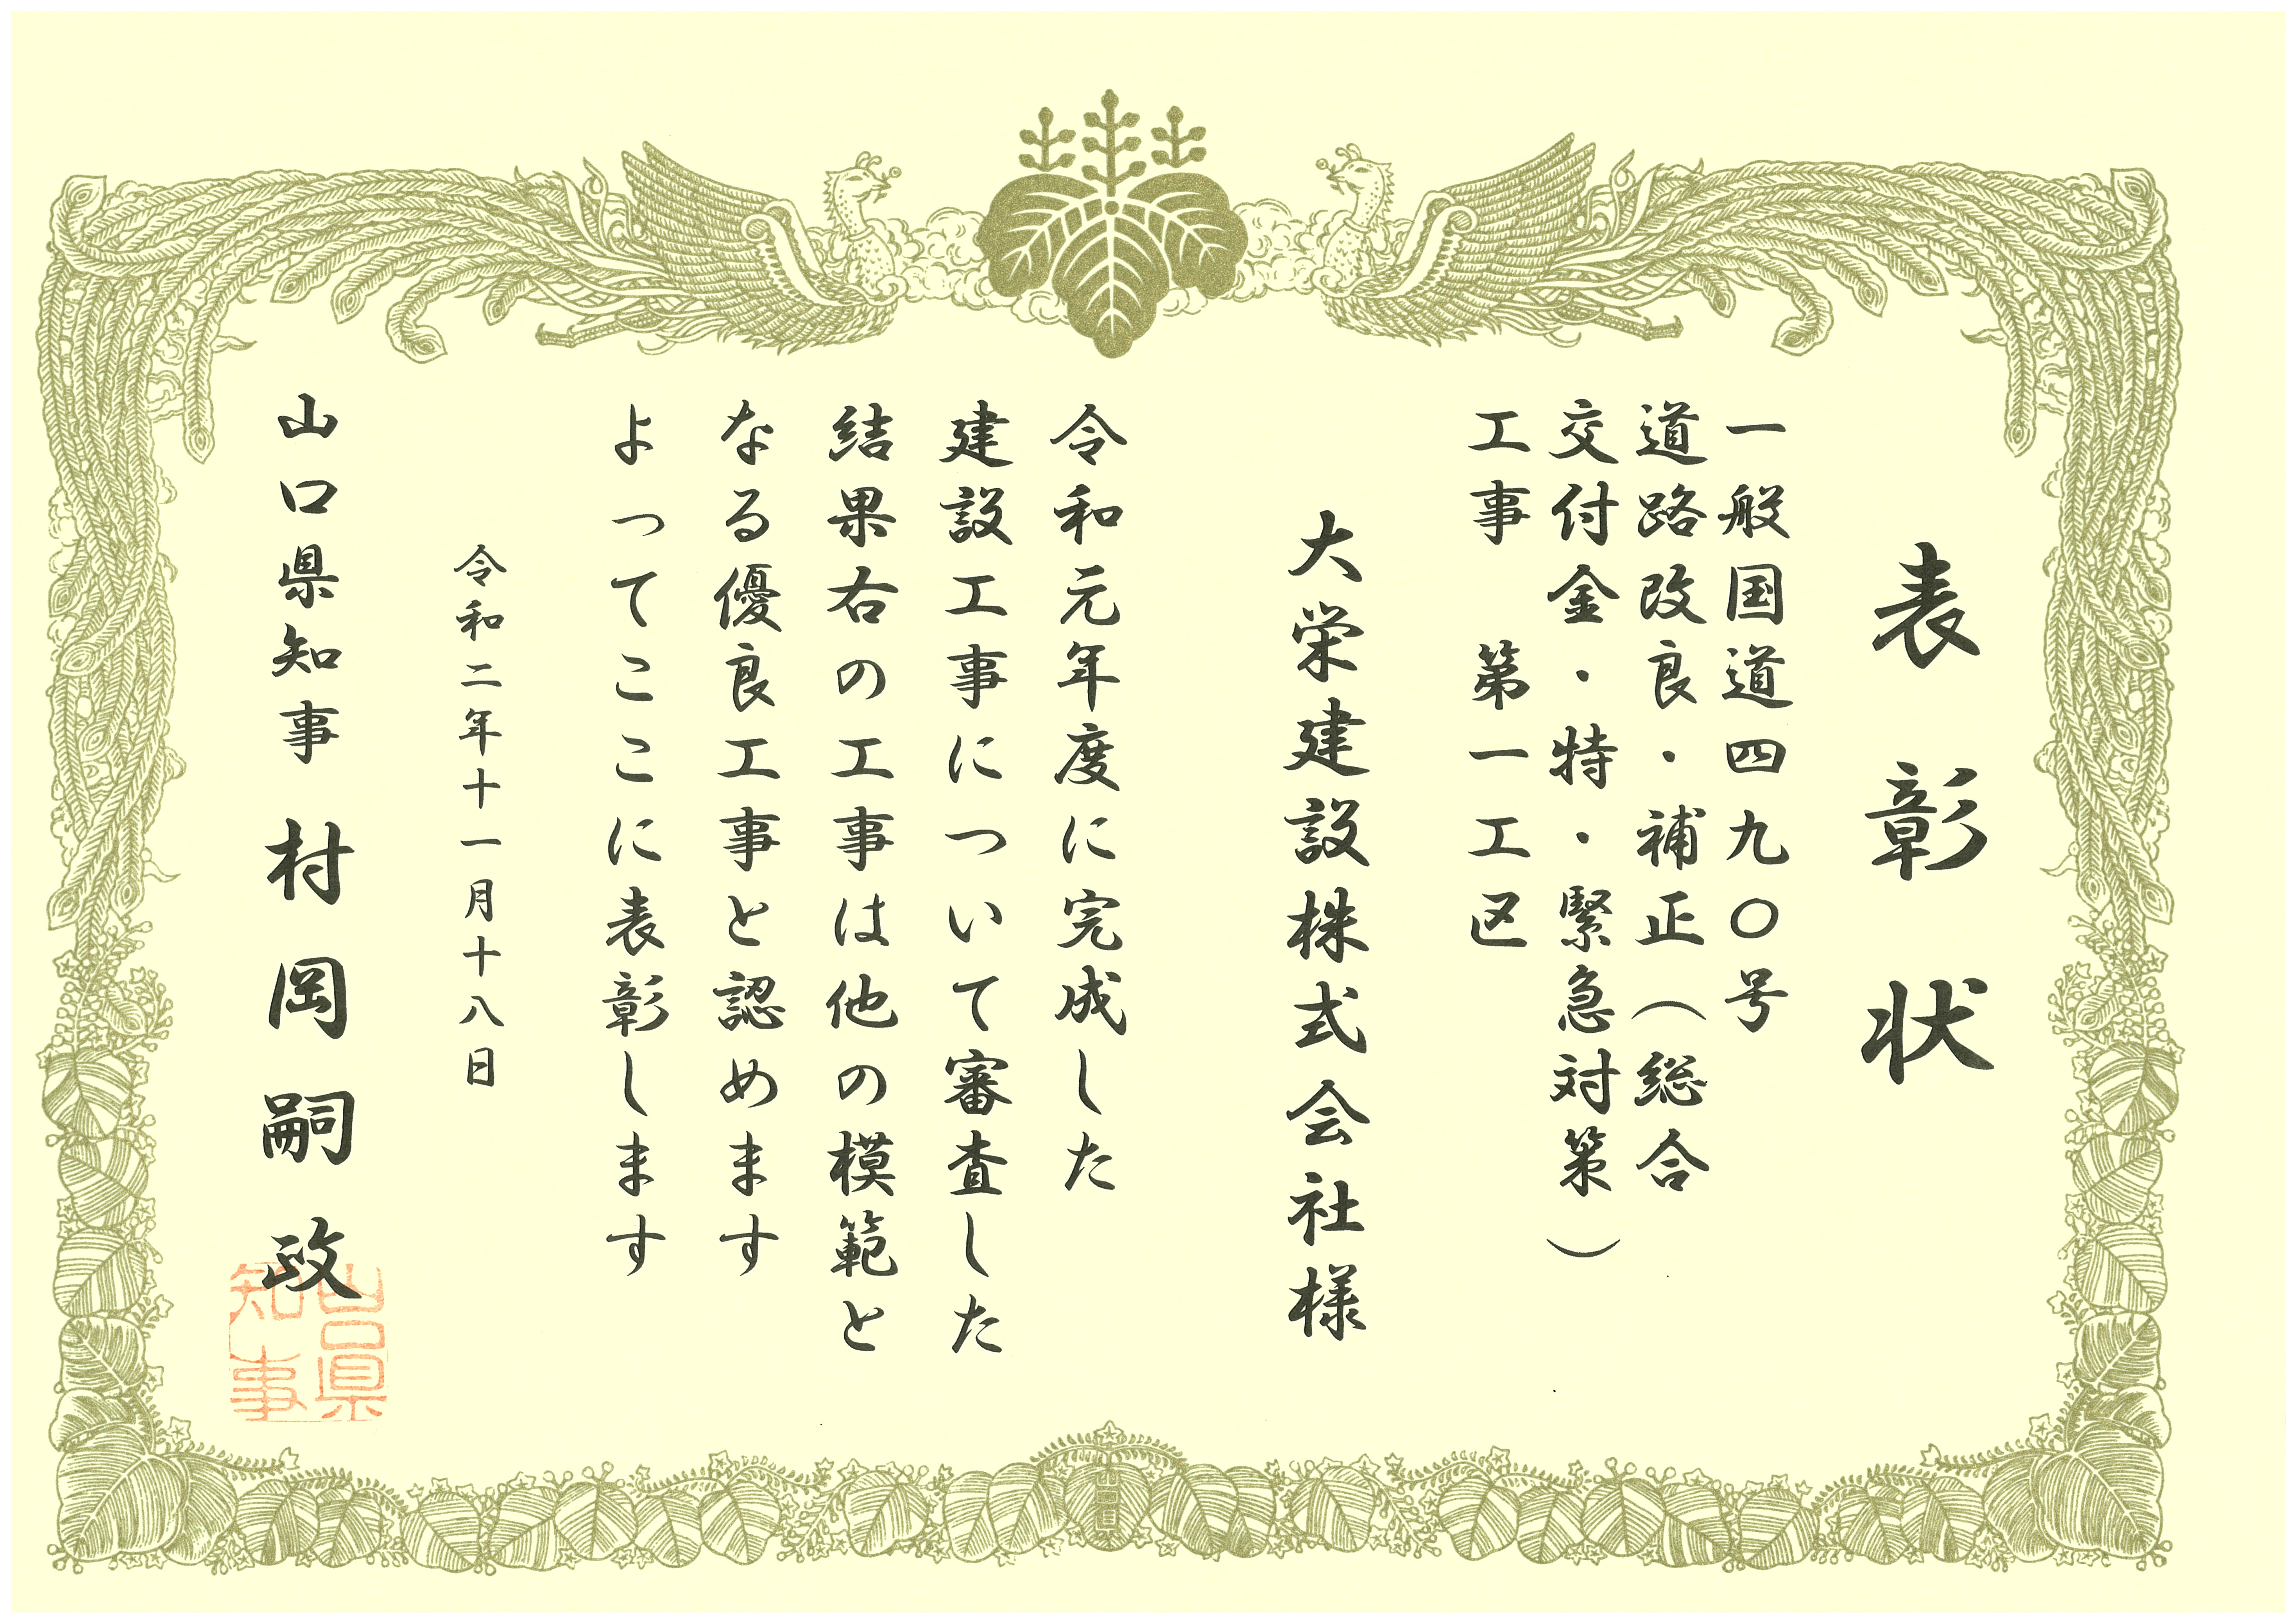 表彰状
一般国道四九〇号
道路改良・補正（総合
交付金・特・緊急対策）
工事　第一工区
大栄建設株式会社様
令和元年度に完成した
建設工事について審査した
結果右の工事は他の模範と
なる優良工事と認めます
よってここに表彰します
令和二年十一月十八日
山口県知事　村岡嗣政
山口県
知事